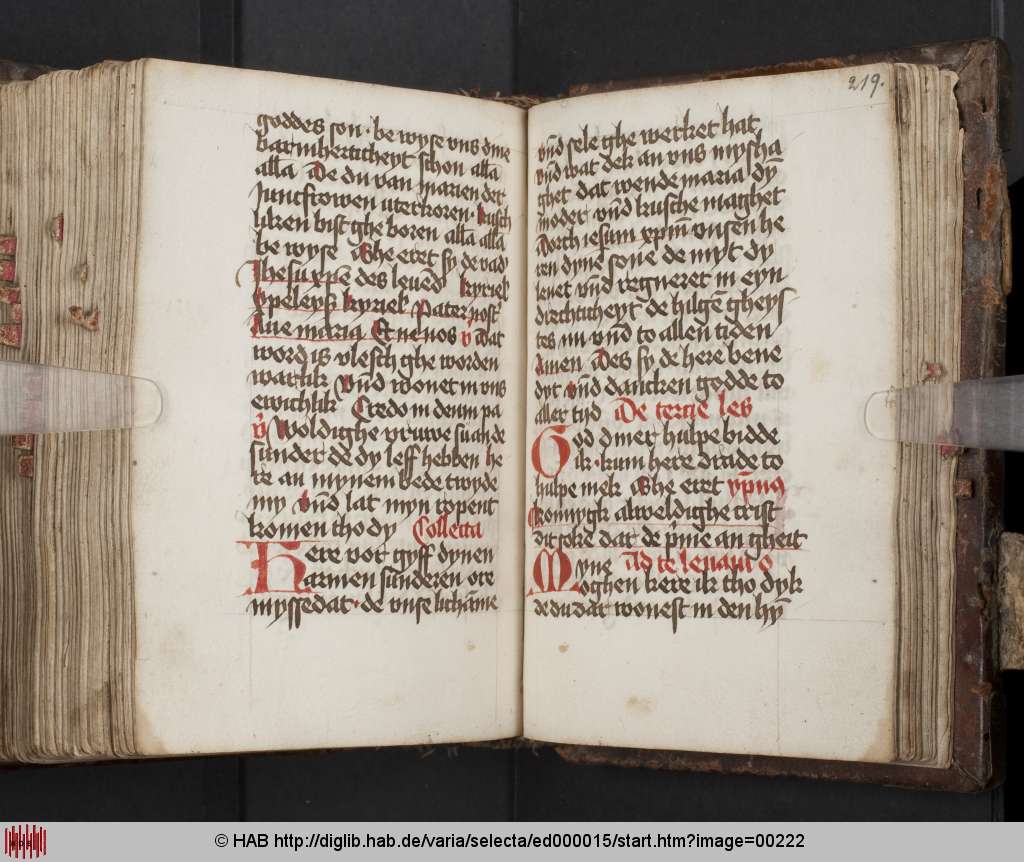 goddes son · be wyse vns dine
barmherticheyt schon alla
alla De du van marien der
Juncfrowen vterkoren · kusch
liken bist ghe boren alla alla
be wyse Ghe eret sy de vad
Jhesu xpe des leuend kyriel
kpeleyson kyriel Pater nost
Aue maria Et ne nos v dat
word is vlesch ghe worden
warlik vnd wonet in vns
ewichlik Credo in deum pa
v Woldighe vruwe su an de
sunder de dy leff hebben he
re an mynem bede twyde
my vnd lat myn ropent
komen tho dy Collecta
Here vor gyff dynen
armen sunderen ore
myssedat · de vnse lichame
219.
vnd sele ghe werket hat
vnd wat dek an vns mysha
ghet dat wende maria dyn
moder vnd kusche maghet
dorch iesum xpm vnsen he
ren dyne sone de myt dy
leuet vnd regneret in eyn
drechticheyt de hilgen gheys
tes nu vnd to allen tiden
Amen Des sy de here bene
dyt vnd dancken godde to
aller tyd De tercie les
God diner hulpe bidde
ik · kum here drade to
hulpe mek Ghe eret ypnus
konnygk alweldighe crist
dit soke dat de prime an gheit
Myne Ad te leuaui o
oghen kere ik tho dyk
de du dar wonest in den hym